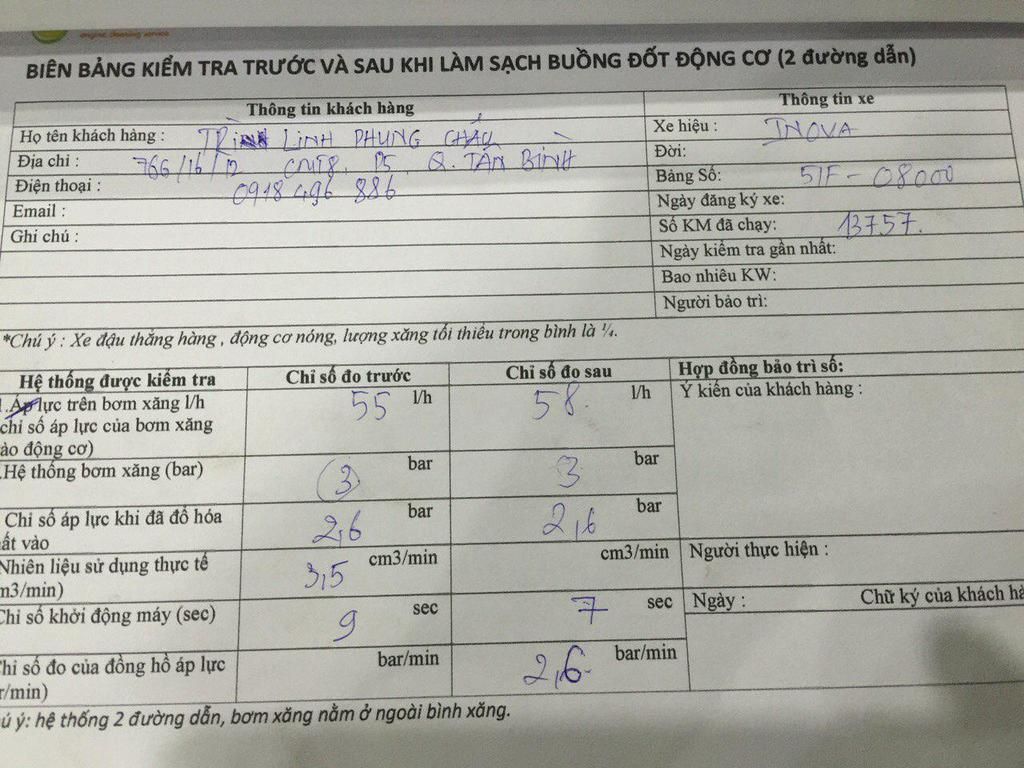 engine cleaning service
BIÊN BẢNG KIỂM TRA TRƯỚC VÀ SAU KHI LÀM SẠCH BUỒNG ĐỐT ĐỘNG CƠ (2 đường dẫn)
Thông tin khách hàng
Thông tin xe
Họ tên khách hàng : LINH PHỤNG CHÂU
Xe hiệu : INOVA
Địa chỉ : 766/16/12 CMT8, P5, Q. TÂN BÌNH
Đời:
Điện thoại : 0918 496 886
Bảng Số: 51F - 08000
Email :
Ngày đăng ký xe:
Ghi chú :
Số KM đã chạy: 13757.
Ngày kiểm tra gần nhất:
Bao nhiêu KW:
Người bảo trì:
*Chú ý : Xe đậu thẳng hàng , động cơ nóng, lượng xăng tối thiểu trong bình là ¼.
Hệ thống được kiểm tra
Chỉ số đo trước
Chỉ số đo sau
Hợp đồng bảo trì số:
.Áp lực trên bơm xăng l/h
chỉ số áp lực của bơm xăng
ào động cơ)
55 l/h
58. l/h
Ý kiến của khách hàng :
.Hệ thống bơm xăng (bar)
3 bar
3 bar
Chỉ số áp lực khi đã đổ hóa
ất vào
2,6 bar
2,6 bar
Nhiên liệu sử dụng thực tế
m3/min)
3,5 cm3/min
cm3/min
Người thực hiện :
Chỉ số khởi động máy (sec)
9 sec
7 sec
Ngày :
Chữ ký của khách hà
hỉ số đo của đồng hồ áp lực
r/min)
bar/min
2,6. bar/min
ú ý: hệ thống 2 đường dẫn, bơm xăng nằm ở ngoài bình xăng.